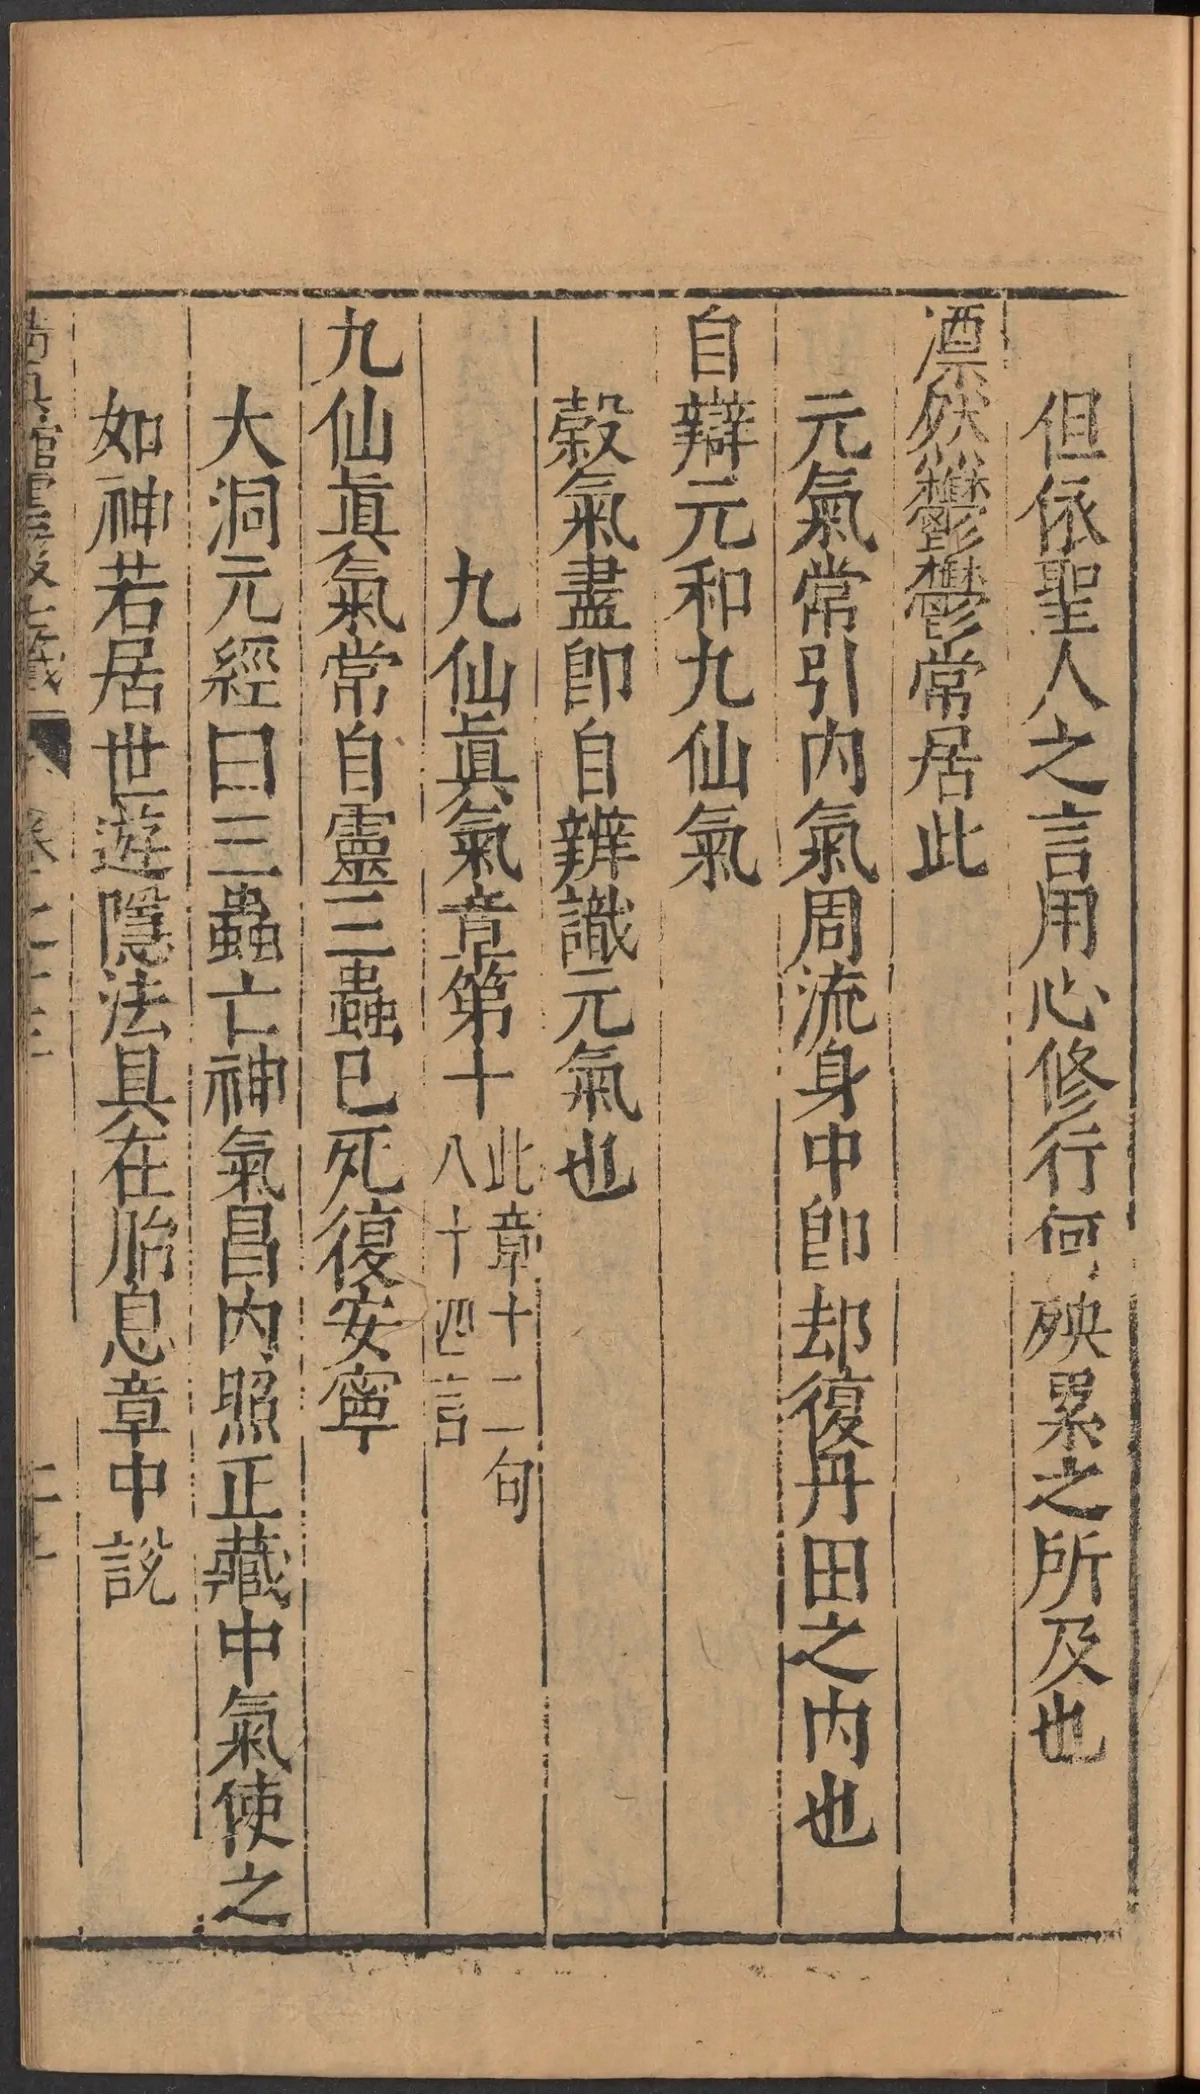 但依聖人之言用心修行何殃累之所及也
凛然鬱鬱常居此
元氣常引内氣周流身中即却復丹田之内也
自辯元和九仙氣
穀氣盡即自辨識元氣也
九仙眞氣章第十
此章十二句
八十四言
九仙眞氣常自靈三蟲已死復安寧
大洞元經曰三蟲亡神氣昌内照正藏中氣使之
如神若居世遊隱法具在胎息章中說